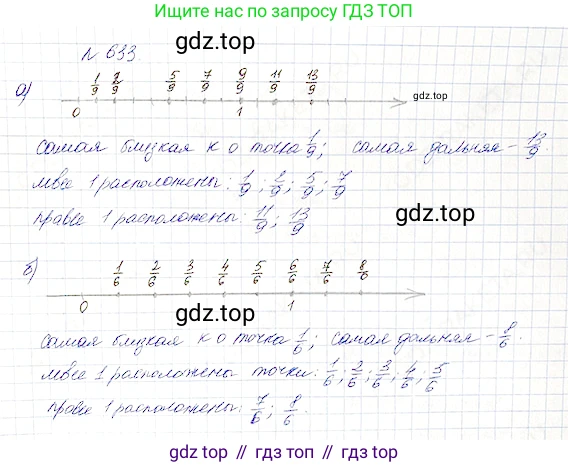 Ищите нас по запросу ГДЗ ТОП
gdz.top
№ 633.
а) 1/9 2/9 5/9 7/9 9/9 11/9 13/9
0 1
самая близкая к 0 точка 1/9; самая дальняя – 13/9.
gdz.top
левее 1 расположены: 1/9; 2/9; 5/9; 7/9
правее 1 расположены: 11/9; 13/9
gdz.top
б) 1/6 2/6 3/6 4/6 5/6 6/6 7/6 8/6
0 1
gdz.top
самая близкая к 0 точка 1/6; самая дальняя – 8/6.
левее 1 расположены точки: 1/6; 2/6; 3/6; 4/6; 5/6
правее 1 расположены: 7/6; 8/6.
gdz.top // gdz.top // gdz.top